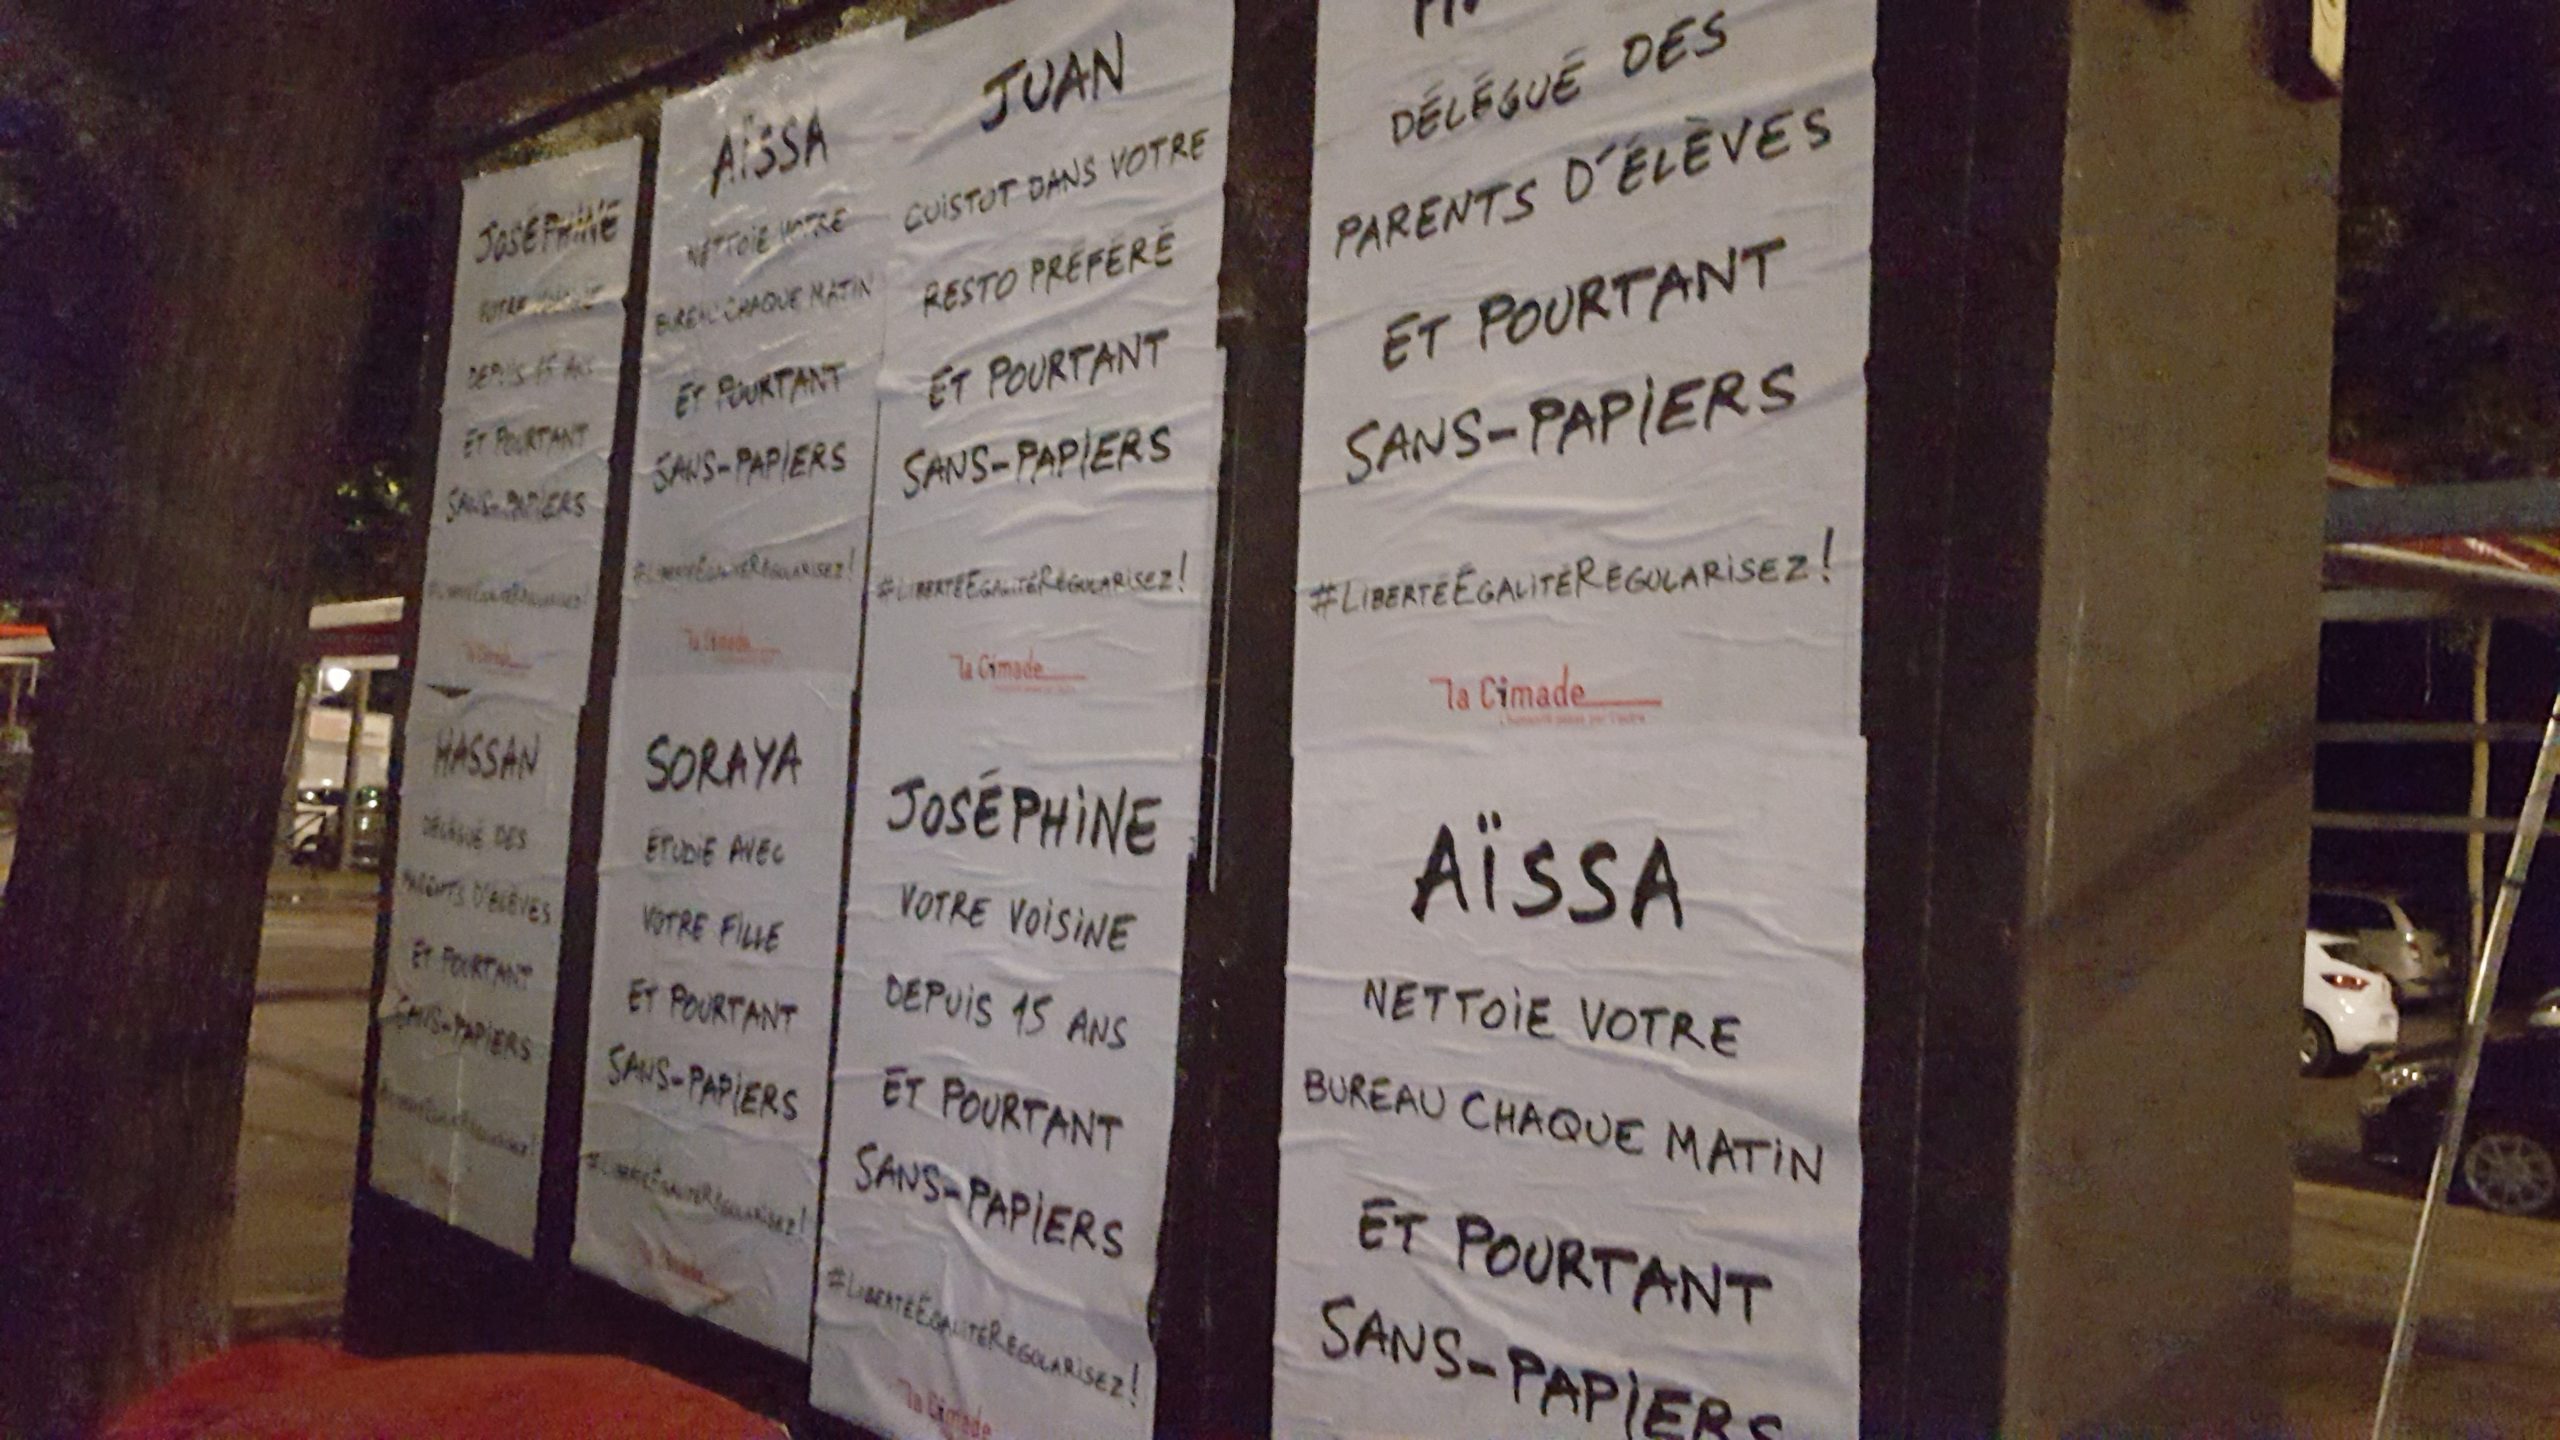 JOSÉPHINE
VOTRE
DEPUIS 15 ANS
ET POURTANT
SANS-PAPIERS
#LIBERTÉÉGALITÉRÉGULARISEZ!
la Cimade
HASSAN
DÉLÉGUÉ DES
PARENTS D'ÉLÈVES
ET POURTANT
SANS-PAPIERS
#LIBERTÉÉGALITÉRÉGULARISEZ!
AÏSSA
NETTOIE VOTRE
BUREAU CHAQUE MATIN
ET POURTANT
SANS-PAPIERS
#LIBERTÉÉGALITÉRÉGULARISEZ!
la Cimade
SORAYA
ÉTUDIE AVEC
VOTRE FILLE
ET POURTANT
SANS-PAPIERS
#LIBERTÉÉGALITÉRÉGULARISEZ!
la Cimade
JUAN
CUISTOT DANS VOTRE
RESTO PRÉFÉRÉ
ET POURTANT
SANS-PAPIERS
#LIBERTÉÉGALITÉRÉGULARISEZ!
la Cimade
JOSÉPHINE
VOTRE VOISINE
DEPUIS 15 ANS
ET POURTANT
SANS-PAPIERS
#LIBERTÉÉGALITÉRÉGULARISEZ!
la Cimade
DÉLÉGUÉ DES
PARENTS D'ÉLÈVES
ET POURTANT
SANS-PAPIERS
#LIBERTÉÉGALITÉRÉGULARISEZ!
la Cimade
L'humanité passe par l'autre
AÏSSA
NETTOIE VOTRE
BUREAU CHAQUE MATIN
ET POURTANT
SANS-PAPIERS